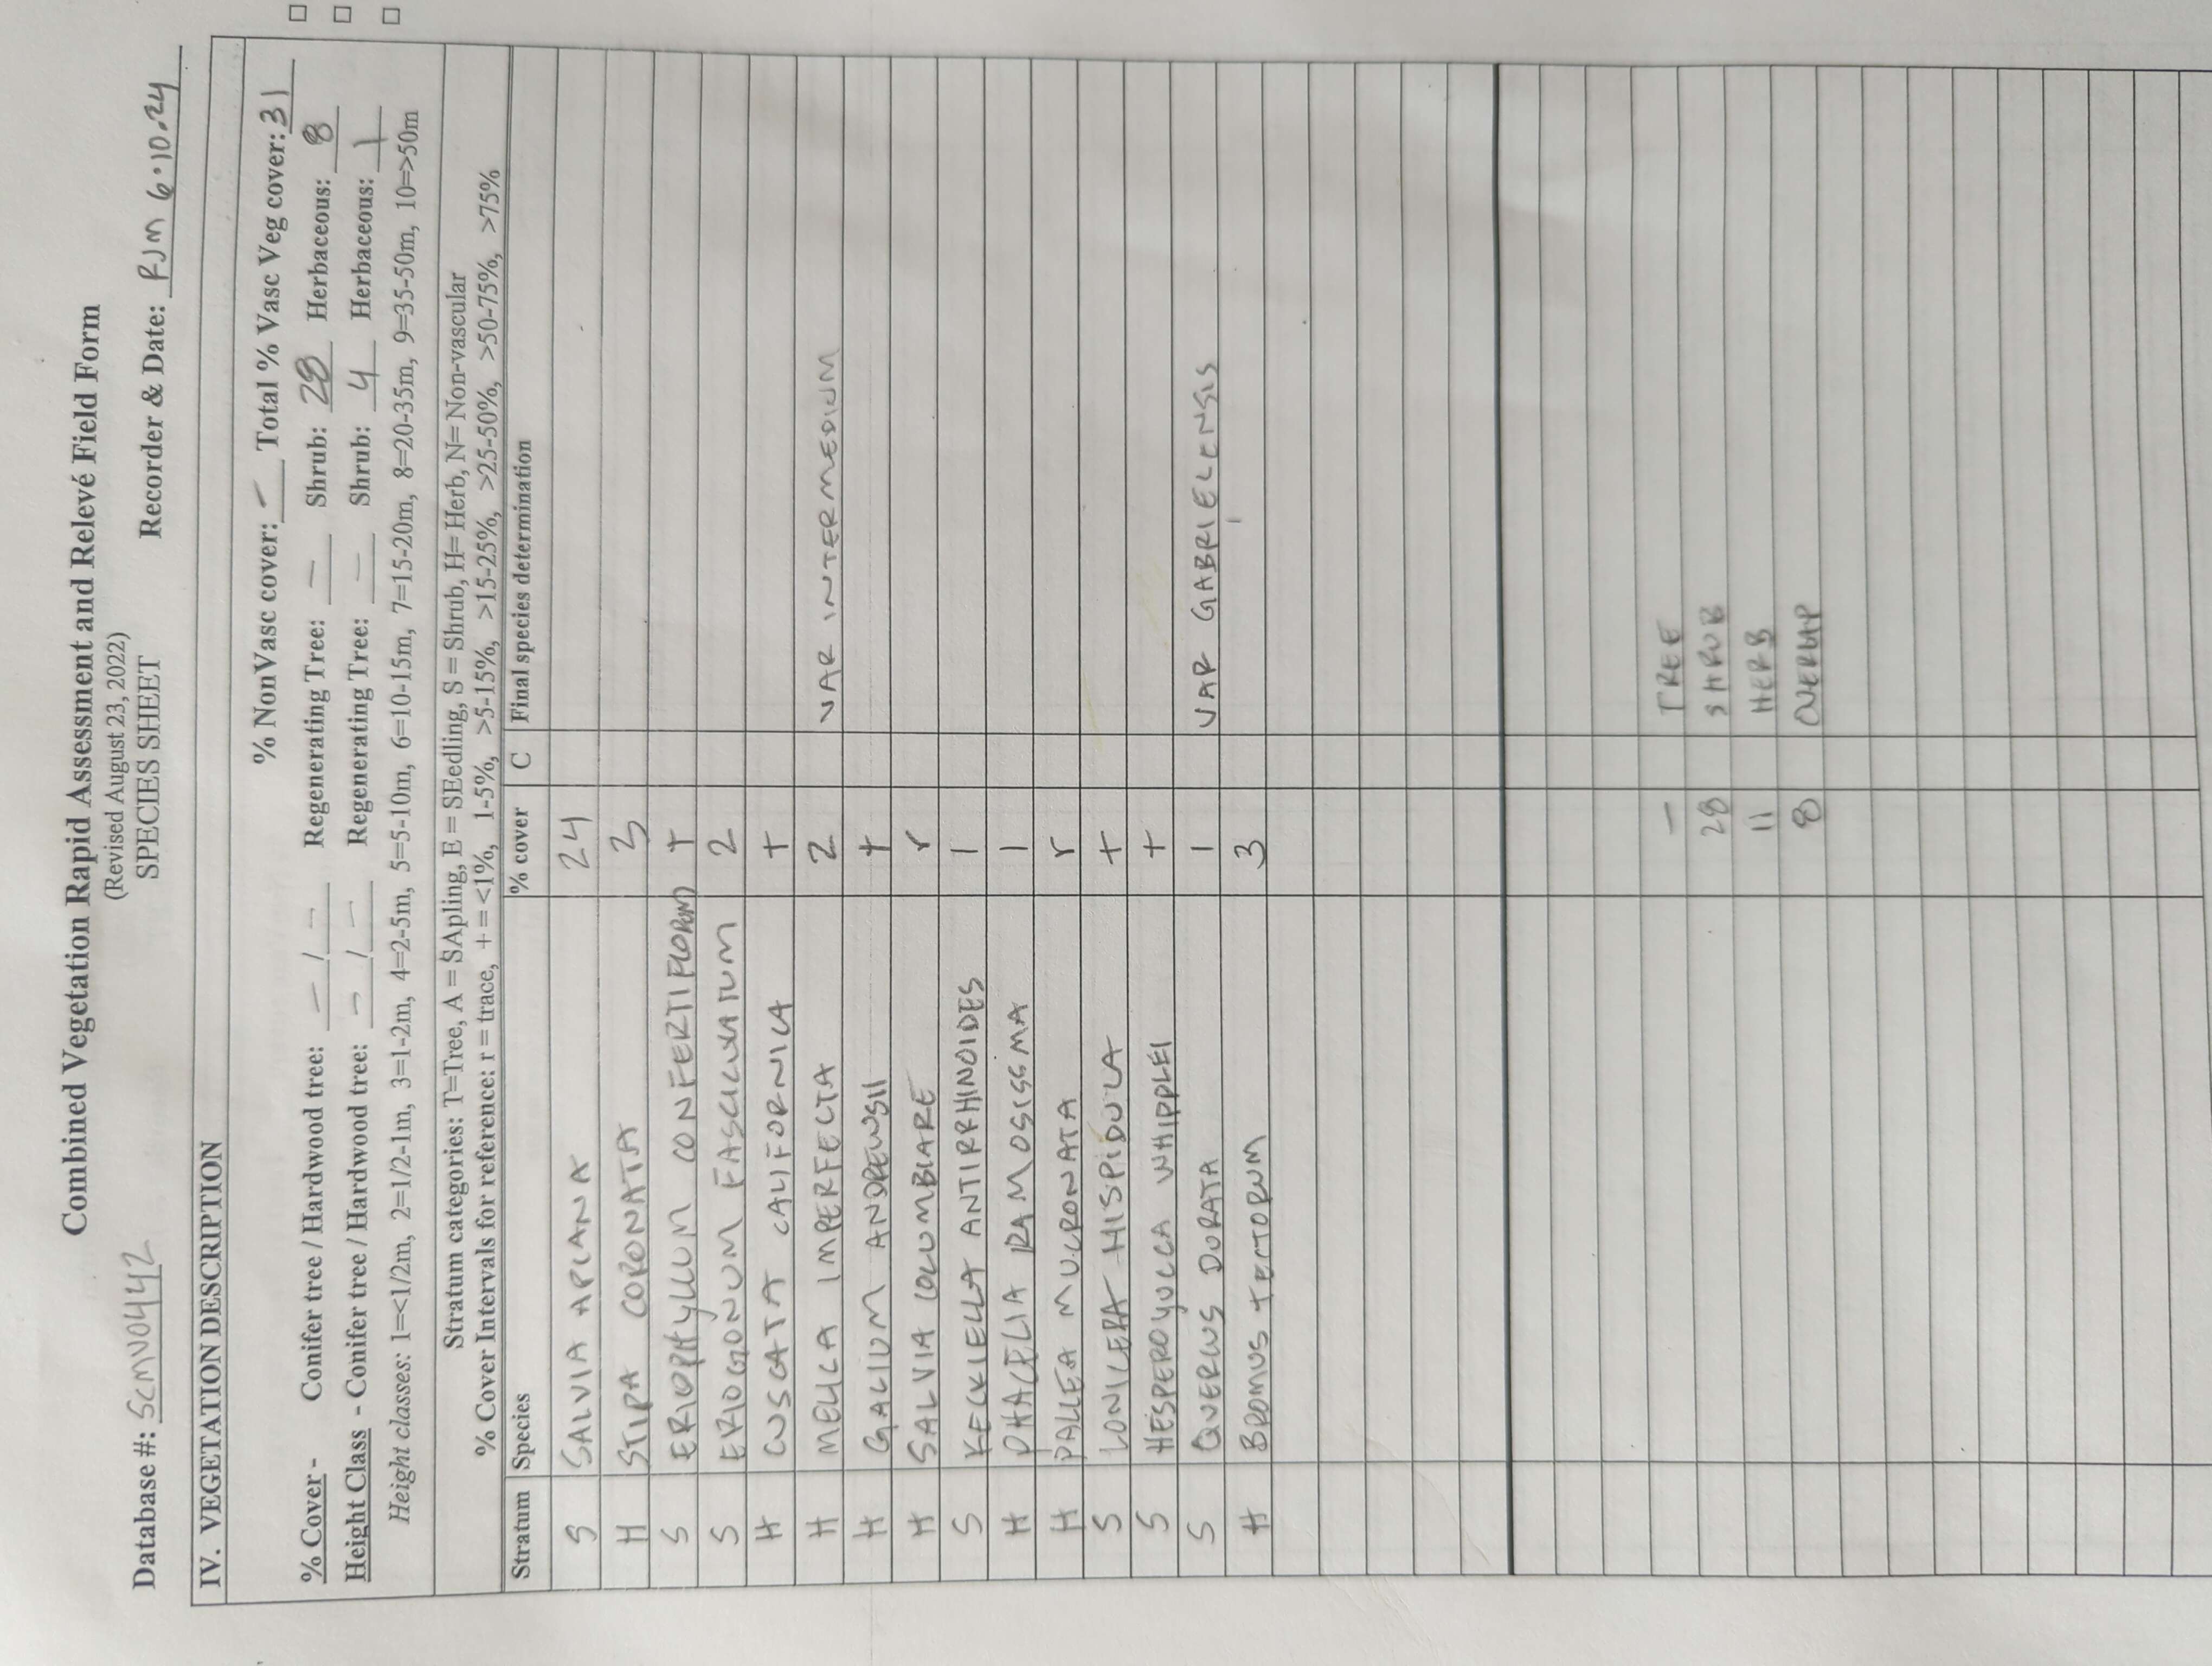 Combined Vegetation Rapid Assessment and Relevé Field Form
(Revised August 23, 2022)
SPECIES SHEET
Database #: SCMV0442 Recorder & Date: RJM 6.10.24
IV. VEGETATION DESCRIPTION
% NonVasc cover: – Total % Vasc Veg cover: 31
% Cover - Conifer tree / Hardwood tree: – / – Regenerating Tree: – Shrub: 28 Herbaceous: 8
Height Class - Conifer tree / Hardwood tree: – / – Regenerating Tree: – Shrub: 4 Herbaceous: 1
Height classes: 1=<1/2m, 2=1/2-1m, 3=1-2m, 4=2-5m, 5=5-10m, 6=10-15m, 7=15-20m, 8=20-35m, 9=35-50m, 10=>50m
Stratum categories: T=Tree, A = SApling, E = SEedling, S = Shrub, H= Herb, N= Non-vascular
% Cover Intervals for reference: r = trace, + = <1%, 1-5%, >5-15%, >15-25%, >25-50%, >50-75%, >75%
Stratum Species % cover C Final species determination
S SALVIA APIANA 24
H STIPA CORONATA 3
S ERIOPHYLLUM CONFERTIFLORUM +
S ERIOGONUM FASCICULATUM 2
H CUSCATA CALIFORNICA +
H MELICA IMPERFECTA 2
H GALIUM ANDREWSII + VAR INTERMEDIUM
H SALVIA COLUMBIARE r
S KECKIELLA ANTIRRHINOIDES 1
H PHACELIA RAMOSISSMA 1
H PALLEA MUCRONATA r
S LONICERA HISPIDULA +
S HESPEROYUCCA WHIPPLEI +
S QUERCUS DURATA 1 VAR GABRIELENSIS
H BROMUS TECTORUM 3
– TREE
28 SHRUB
11 HERB
8 OVERLAP